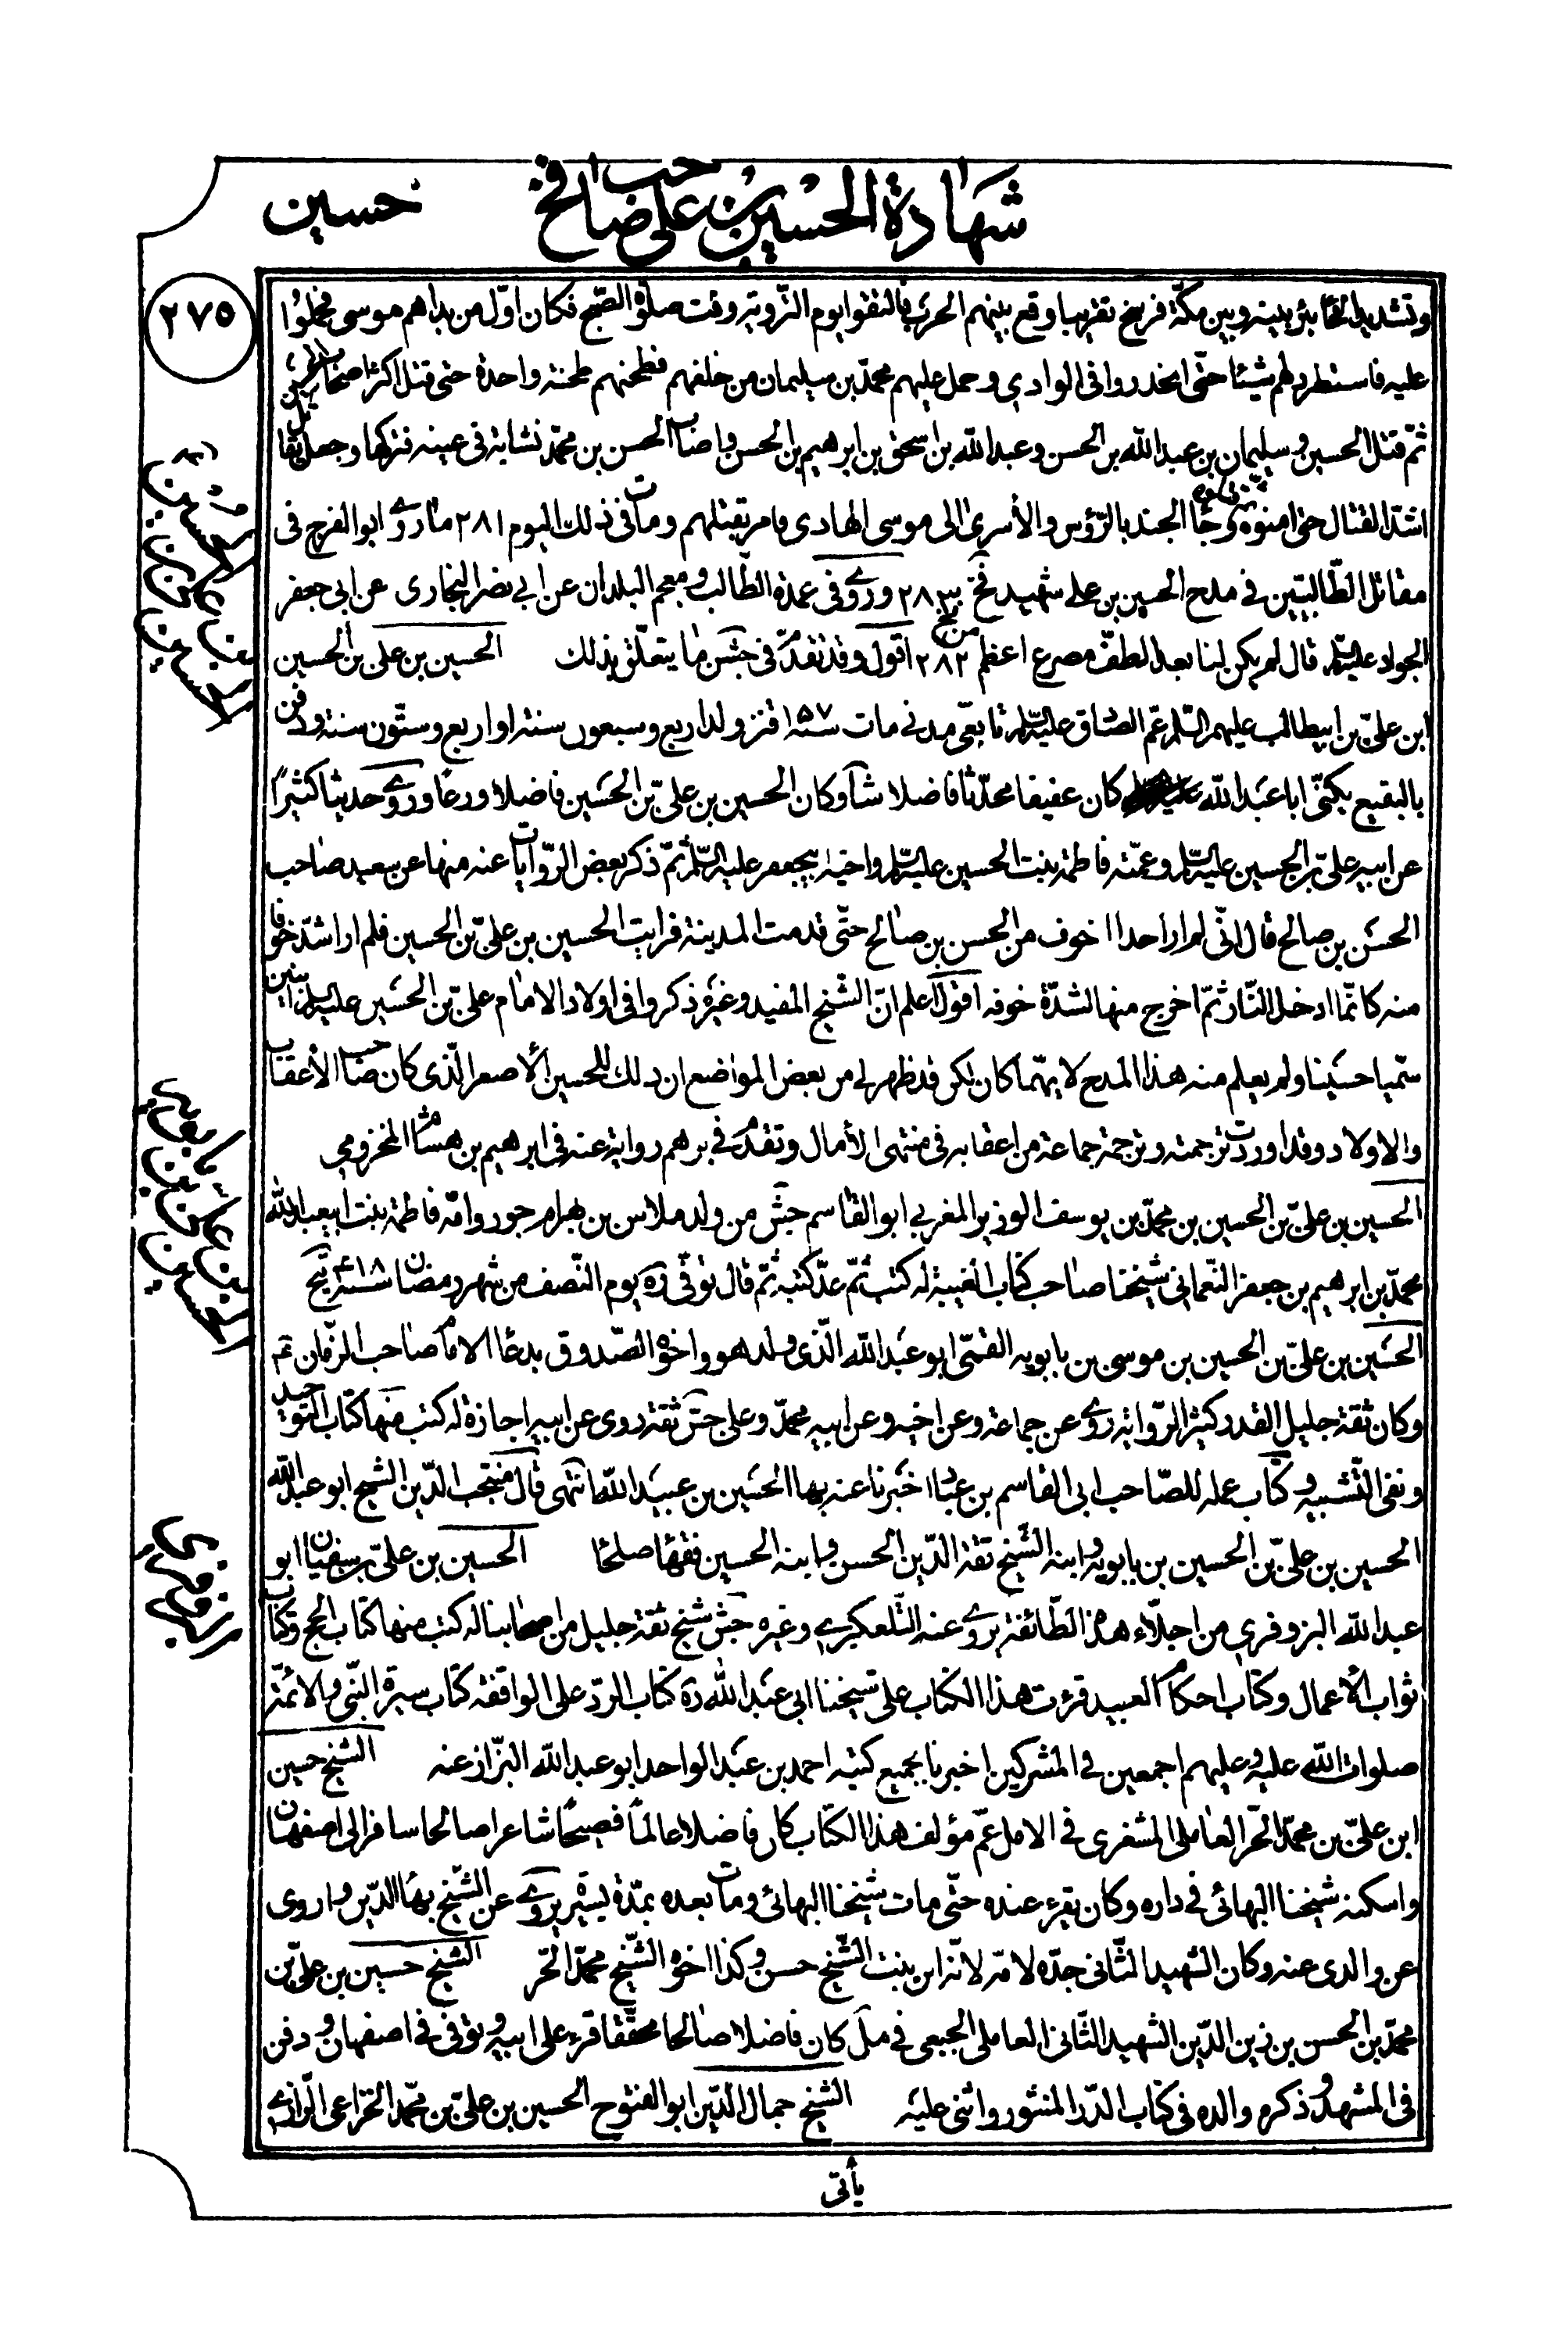 شهادة الحسين بن علي صاحب فخ
حسين
٢٧٥
وتشديد الخا بئر بينه وبين مكّة فرسخ تقريبا وقع بينهم الحرب فالتقوا يوم التّروية وقت صلوة الصّبح فكان اوّل من بداهم موسى فحملوا
عليه فاستطرد لهم شيئا حتّى انحدروا في الوادي وحمل عليهم محمّد بن سليمان من خلفهم فطحنهم طحنة واحدة حتى قتل اكثر اصحاب الحسين
ثمّ قتل الحسين وسليمان بن عبد الله بن الحسن وعبد الله بن اسحق بن ابرهيم بن الحسن واصاب الحسن بن محمّد نشابة في عينه فتركها وجعل يقاتل
اشدّ القتال حتى امنوه وجا الجند بالرّؤس والأسرى الى موسى الهادي فامر بقتلهم ومات في ذلك اليوم ٢٨١ ما روى ابو الفرج في
مقاتل الطّالبيّين في مدح الحسين بن علي شهيد فخ ٢٨٣ وروى في عمدة الطّالب ومعجم البلدان عن ابي نصر البخاري عن ابي جعفر
الجواد عليه السّلم قال لم يكن لنا بعد الطفّ مصرع اعظم من فخ ٢٨٢ اقول وقد تقدّم في حسن ما يتعلّق بذلك الحسين بن علي بن الحسين
ابن عليّ بن ابيطالب عليهم السّلم عمّ الصّادق عليه السّلم تابعيّ مدني مات سنة ١٥٧ قنز وله اربع وسبعون سنة او اربع وستّون سنة ودفن
بالبقيع يكنّى ابا عبد الله كان عفيفا محدّثا فاضلا شا وكان الحسين بن عليّ بن الحسين فاضلا ورعا وروى حديثا كثيرًا
عن ابيه عليّ بن الحسين عليه السّلم وعمّته فاطمة بنت الحسين عليه السّلم واخيه ابيجعفر عليه السّلم ثمّ ذكر بعض الرّوايات عنه منها عن سعيد صاحب
الحسن بن صالح قال انّي لم ار احدا اخوف من الحسن بن صالح حتّى قدمت المدينة فرايت الحسين بن عليّ بن الحسين فلم ار اشدّ خوفا
منه كانّما ادخل النّار ثمّ اخرج منها لشدّة خوفه اقول اعلم انّ الشّيخ المفيد وغيره ذكروا في اولاد الامام عليّ بن الحسين عليه السلم ابنين
سمّيا حسينا ولم يعلم منه هذا المدح لايهما كان لكن قد ظهر لي من بعض المواضع ان ذلك للحسين الأصغر الّذي كان صاحب الأعقاب
والاولاد وقد اوردت ترجمته وترجمة جماعة من اعقابه في منتهى الأمال وتقدّم في برهم رواية عنه في ابرهيم بن هشام المخزومي
الحسين بن عليّ بن الحسين بن محمّد بن يوسف الوزير المغربي ابو القاسم جش من ولد بلاس بن بهرام جور وامّه فاطمة بنت ابيعبد الله
محمّد بن ابرهيم بن جعفر النّعماني شيخنا صاحب كتاب الغيبة له كتب ثمّ عدّ كتبه ثمّ قال توفّي ره يوم النّصف من شهر رمضان سنة ٤١٨ تيح
الحسين بن عليّ بن الحسين بن موسى بن بابويه القمّى ابو عبد الله الّذي ولد هو واخوه الصّدوق بدعا الامام صاحب الزّمان
وكان ثقة جليل القدر كثير الرّواية روى عن جماعة وعن اخيه وعن ابيه محمّد وعلي جش ثقة روى عن ابيه اجازة له كتب منها كتاب التّوحيد
ونفي التّشبيه وكتاب عمله للصّاحب ابي القاسم بن عبّاد اخبرنا عنه بها الحسين بن عبيد الله انتهى قال منتجب الدّين الشيخ ابو عبد الله
الحسين بن عليّ بن الحسين بن بابويه وابنه الشّيخ ثقة الدّين الحسن وابنه الحسين فقها صلحا الحسين بن عليّ بن سفيان ابو
عبد الله البزوفري من اجلّاء هذه الطّائفة يروى عنه التّلعكبري وغيره جش شيخ ثقة جليل من اصحابنا له كتب منها كتاب الحج وكتاب
ثواب الأعمال وكتاب احكام العبيد قرءت هذا الكتاب على شيخنا ابي عبد الله ره كتاب الردّ على الواقفة كتاب سيرة النّبي والائمّة
صلوات الله عليه وعليهم اجمعين في المشركين اخبرنا بجميع كتبه احمد بن عبد الواحد ابو عبد الله البزّاز عنه الشّيخ حسين
ابن عليّ بن محمّد الحرّ العاملي المشغرى في الامل عمّ مؤلف هذا الكتاب كان فاضلا عالمًا فصيحًا شاعرا صالحا سافر الى اصفهان
واسكنه شيخنا البهائي في داره وكان يقرء عنده حتّى مات شيخنا البهائي ومات بعده بمدّة يسيرة يروى عن الشّيخ بهاالدّين واروى
عن والدى عنه وكان الشهيد الثّاني جدّه لامّه لانّه ابن بنت الشّيخ حسن وكذا اخوه الشّيخ محمّد الحّر الشيخ حسين بن عليّ بن
محمّد بن الحسن بن زين الدّين الشهيد الثّاني العاملي الجبعي في مل كان فاضلا صالحا محقّقا قرء على ابيه وتوفّي في اصفهان ودفن
في المشهد وذكره والده في كتاب الدّر المنثور واثنى عليه الشيخ جمال الدّين ابو الفتوح الحسين بن عليّ بن محّمد الخزاعي الرّازي
يأتى
الحسين بن علي بن الحسين
الحسين بن علي بن بابويه
بزوفرى